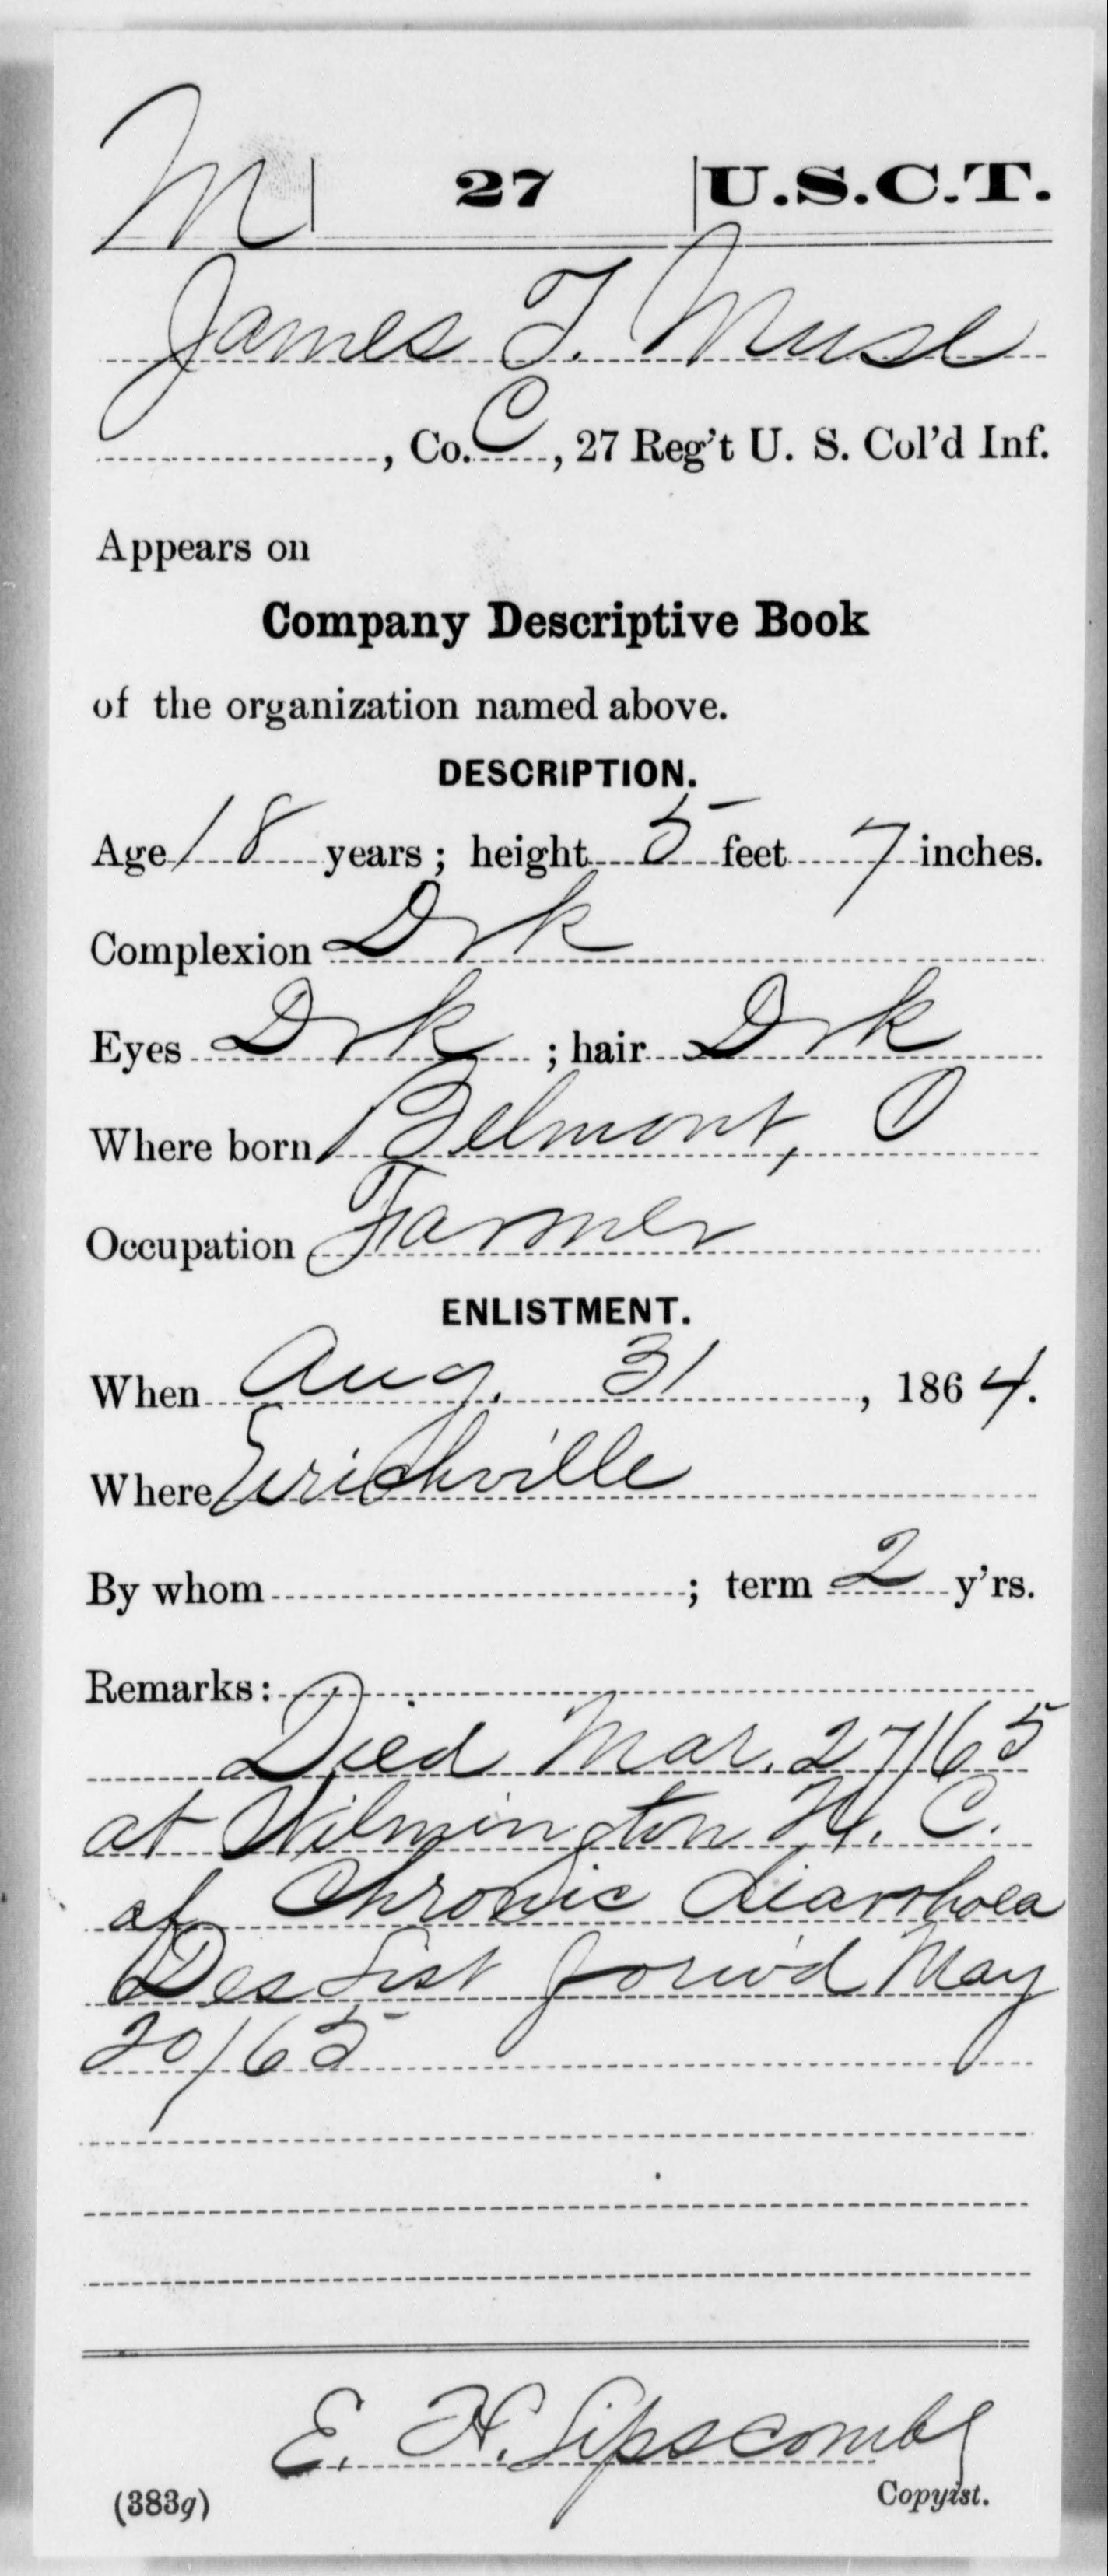 M | 27 | U.S.C.T.
James T. Muse
, Co. C, 27 Reg't U. S. Col'd Inf.
Appears on
Company Descriptive Book
of the organization named above.
DESCRIPTION.
Age 18 years; height 5 feet 7 inches.
Complexion Drk
Eyes Drk; hair Drk
Where born Belmont, O
Occupation Farmer
ENLISTMENT.
When Aug. 31, 1864.
Where
By whom ; term 2 y'rs.
Remarks:
Died Mar. 27/65
at Wilmington N. C.
of Chronic diarrhoea
Des List forw'd May
20/65
E. H. Lipscomb
Copyist.
(383g)